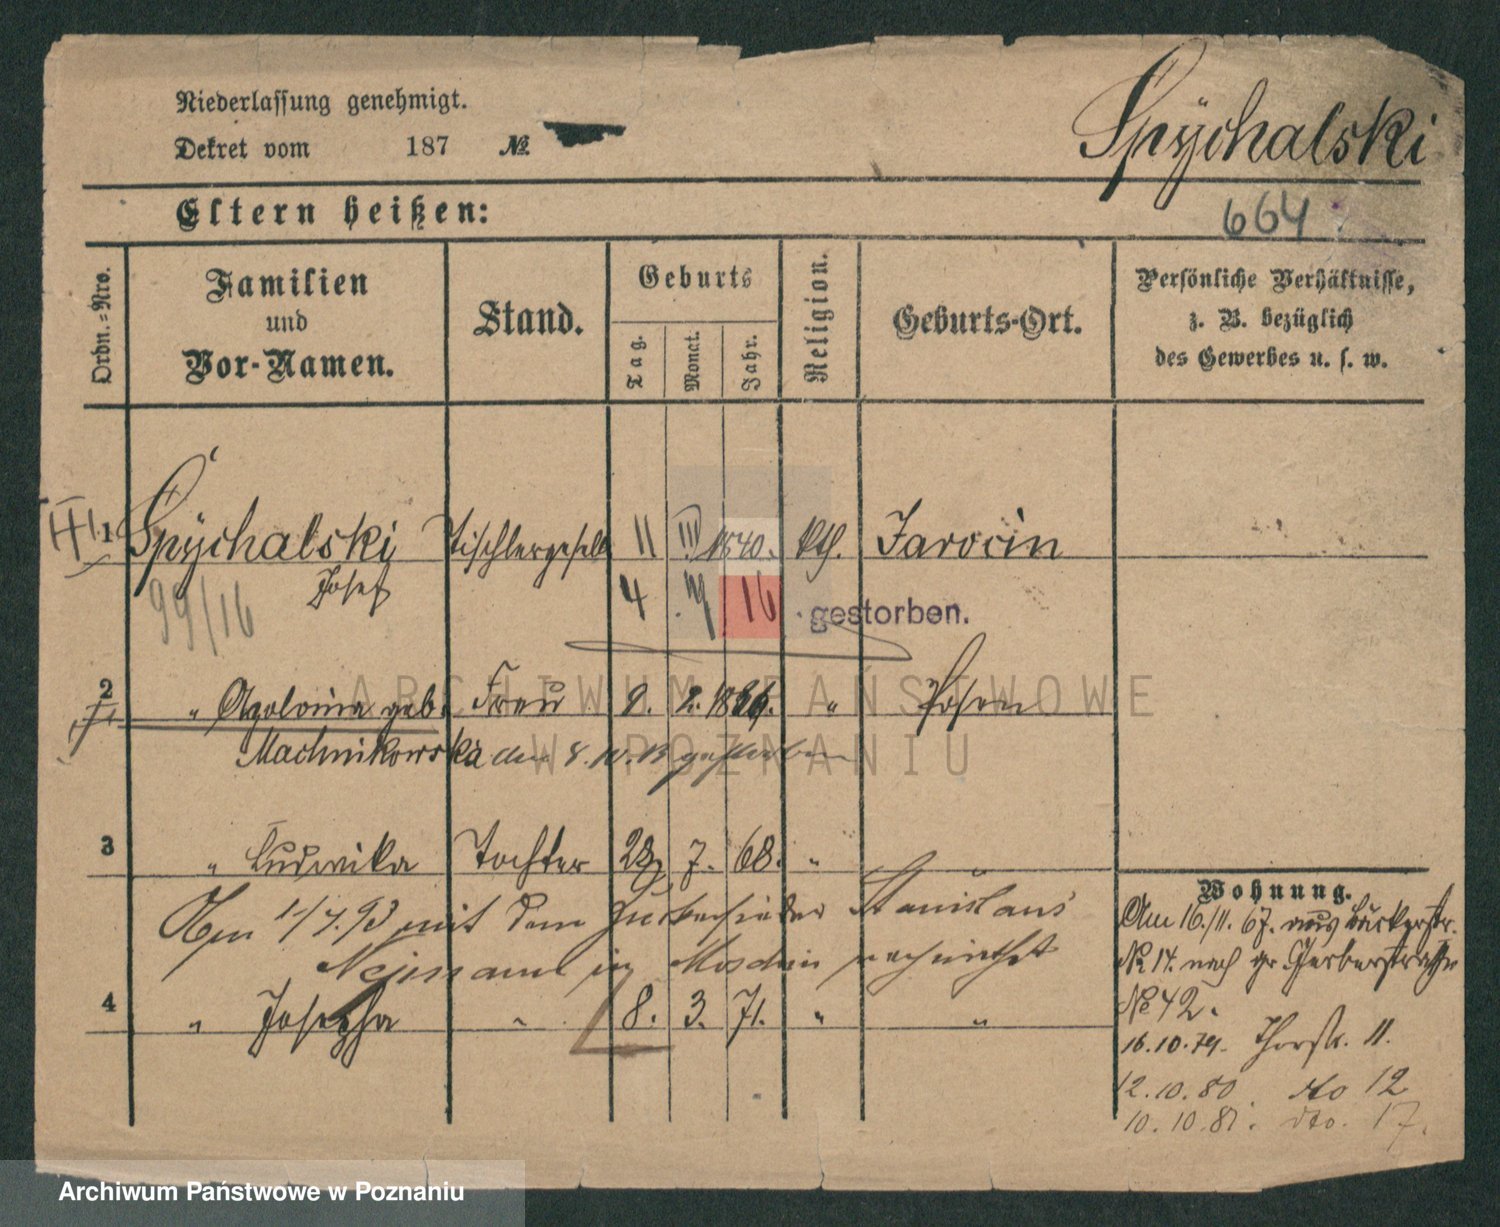 Niederlassung genehmigt.
Dekret vom 187 №
Spÿchalski
Eltern heißen:
664
Ordn.=Nro.
Familien
und
Vor-Namen.
Stand.
Geburts
Tag.
Monat.
Jahr.
Religion.
Geburts-Ort.
Persönliche Verhältnisse,
z. B. bezüglich
des Gewerbes u. s. w.
1 Spÿchalski Tischlergesell 11 III 1840. kth. Jarocin
Josef
99/16
4 16 gestorben.
2 " Apolonia geb. Frau 9. 2. " Posen
Machnikowska den gestorben
3 " Ludwika Tochter 28 7. 68. "
Am 1/7.93 mit dem Stanislaus
in verheirathet
4 " Josepha " 8. 3. 71. " "
Wohnung.
Am 16./11. 67. aus Bäckerstr.
№ 14. nach gr. Gerberstraße
№ 42.
16.10.79. Thorstr. 11.
12.10.80 dto 12
10.10.81. dto. 17.
ARCHIWUM PAŃSTWOWE
W POZNANIU
Archiwum Państwowe w Poznaniu